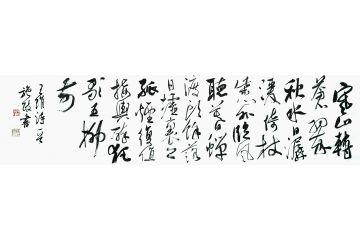 寒山轉
蒼翠
秋水日潺
湲倚杖
柴門外臨風
聽暮蟬
渡頭餘落
日墟里上
孤煙復值
接輿醉狂
歌五柳
前
王維詩一首
書